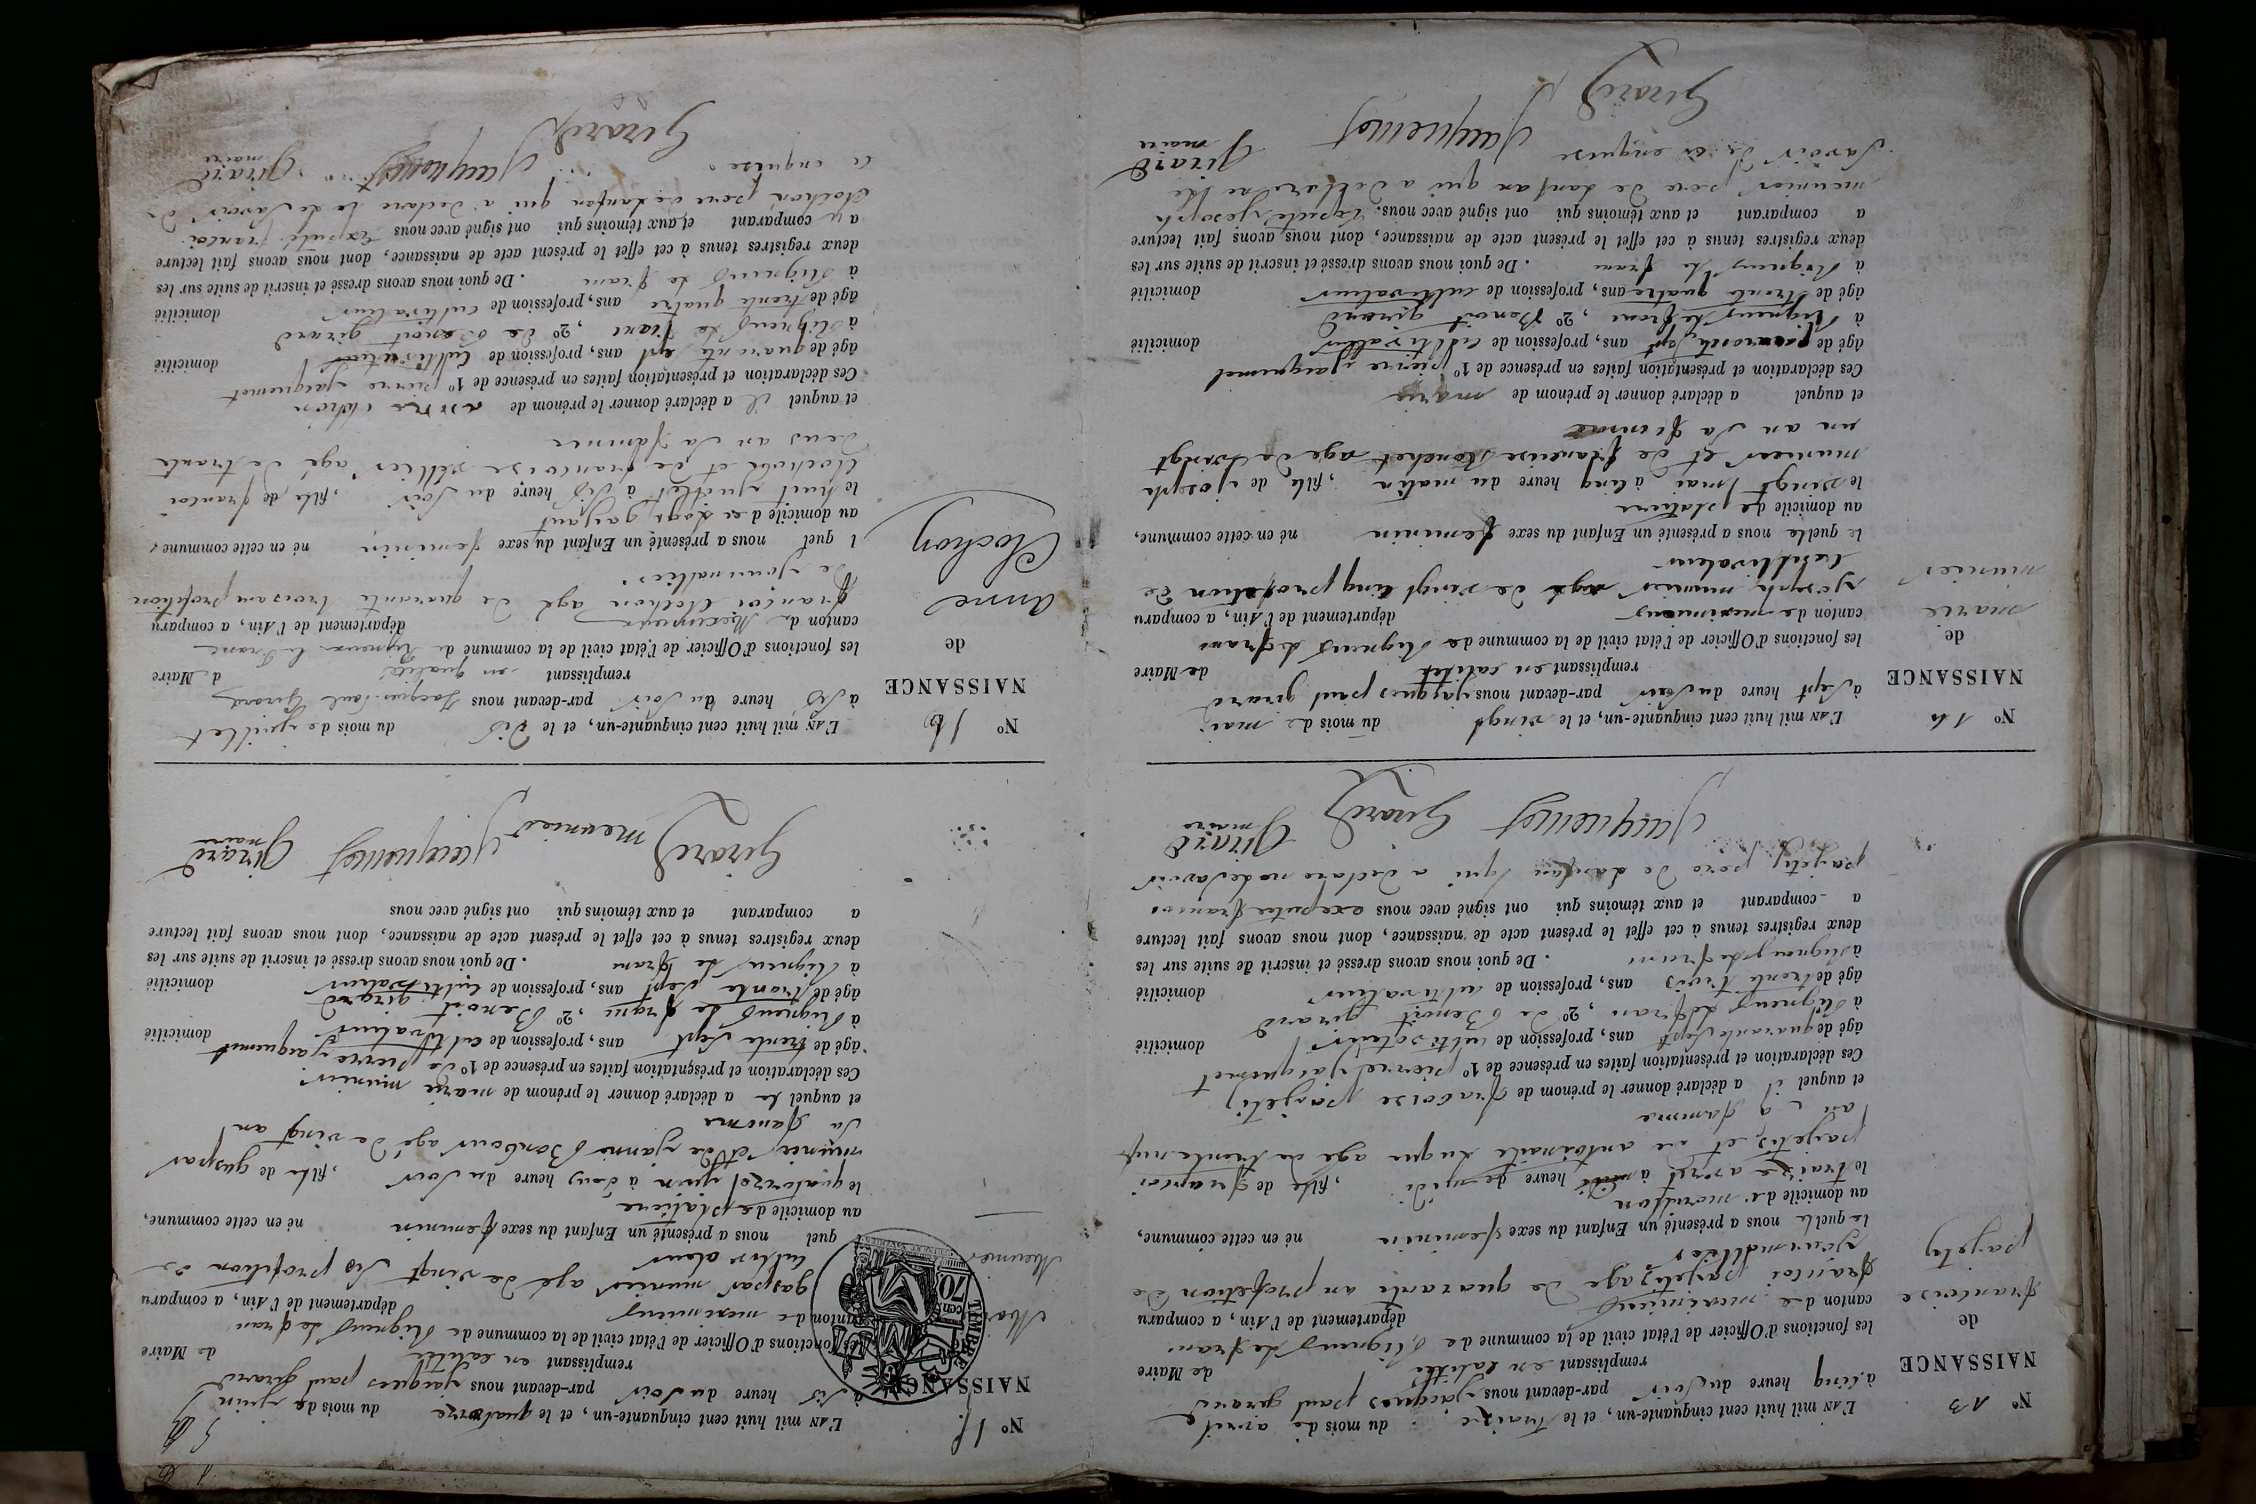 N° 13
NAISSANCE
de
francoise
payety
L'AN mil huit cent cinquante-un, et le traize du mois de avril
à cinq heure du soir par-devant nous jacques paul girard
remplissant en calitté de Maire
les fonctions d'Officier de l'état civil de la commune de Rigneux le fran
canton de meximieux département de l'Ain, a comparu
francoi payety age de quarante an profetion de
journallier
le quelle nous a présenté un Enfant du sexe feminin né en cette commune,
au domicile de
le traize avril à heure de midi, fille de francoi
payety et de antoinaite age de trente neuf
an sa famme
et auquel il a déclaré donner le prénom de francoise payety
Ces déclaration et présentation faites en présence de 1° pierre jaiquemet
âgé de quarante sept ans, profession de cultivateur domicilié
à Rigneux le fran, 2° de Benoit girard
âgé de trente trois ans, profession de cultivateur domicilié
à Rigneux le fran. De quoi nous avons dressé et inscrit de suite sur les
deux registres tenus à cet effet le présent acte de naissance, dont nous avons fait lecture
a comparant et aux témoins qui ont signé avec nous excepter francois
payety père de lanfan qui a declare ne de savoir
Jacquemet Girard Girard
maire
N° 14
NAISSANCE
de
marie
munier
L'AN mil huit cent cinquante-un, et le vingt du mois de mai
à sept heure du soir par-devant nous jaiques paul girard
remplissant en calitet de Maire
les fonctions d'Officier de l'état civil de la commune de Rigneux le fran
canton de meximieux département de l'Ain, a comparu
joseph munier age de vingt cinq profetion de
cultivateur
le quelle nous a présenté un Enfant du sexe feminin né en cette commune,
au domicile de platiere
le vingt mai à cinq heure du matin, fille de joseph
munier et de francoise age de vingt
un an sa femme
et auquel a déclaré donner le prénom de marie
Ces déclaration et présentation faites en présence de 1° pierre jaiquemet
âgé de sept ans, profession de cultivateur domicilié
à Rigneux le fran, 2° Benoit girard
âgé de trente quatre ans, profession de cultivateur domicilié
à Rigneux le fran. De quoi nous avons dressé et inscrit de suite sur les
deux registres tenus à cet effet le présent acte de naissance, dont nous avons fait lecture
a comparant et aux témoins qui ont signé avec nous. Exepute joseph
meunier pere de lanfan qui a declare ne
savoir de ci enquise
Girard Jacquemet Girard
maire
N° 15
NAISSANCE
Meunier
L'AN mil huit cent cinquante-un, et le quatorze du mois de juin
à sis heure du soir par-devant nous jaiques paul girard
remplissant en calitet de Maire
les fonctions d'Officier de l'état civil de la commune de Rigneux le fran
canton de meximieux département de l'Ain, a comparu
gaspar munier age de vingt sis profetion de
cultivateur
quel nous a présenté un Enfant du sexe feminin né en cette commune,
au domicile de platiere
le quatorze juin à heure du soir, fille de gaspar
munier et de janne Bonbour agé de vingt an
sa famme
et auquel le a déclaré donner le prénom de marie munier
Ces déclaration et présentation faites en présence de 1° de pierre jaiquemet
âgé de trente sept ans, profession de cultivateur domicilié
à Rigneux le fran, 2° Benoit girard
âgé de trante sept ans, profession de cultivateur domicilié
à Rigneux le fran. De quoi nous avons dressé et inscrit de suite sur les
deux registres tenus à cet effet le présent acte de naissance, dont nous avons fait lecture
a comparant et aux témoins qui ont signé avec nous
Girard meunier Jacquemet Girard
maire
TIMBRE
70
CENT.
N° 16
NAISSANCE
de
Anne
Clochon
L'AN mil huit cent cinquante-un, et le dis du mois de juillet
à sis heure du soir par-devant nous Jacques Paul Girard
remplissant en qualité d Maire
les fonctions d'Officier de l'état civil de la commune de Rigneux le Franc
canton de Meximieux département de l'Ain, a comparu
françoi clochon agé de quarante troisan profetion
de journallier
l quel nous a présenté un Enfant du sexe feminin né en cette commune,
au domicile de
le huit juillet à sis heure du soir, fille de francoi
clochon et de francoise agé de trante
deus an sa famme
et auquel il a déclaré donner le prénom de anne clochon
Ces déclaration et présentation faites en présence de 1° pierre jacquemet
âgé de quarante sept ans, profession de cultivateur domicilié
à Rigneux le franc, 2° de Benoit girard
âgé de trente quatre ans, profession de cultivateur domicilié
à Rigneux le fran. De quoi nous avons dressé et inscrit de suite sur les
deux registres tenus à cet effet le présent acte de naissance, dont nous avons fait lecture
a u comparant et aux témoins qui ont signé avec nous exputé francoi
clochon pere de lanfan qui a declare le de savoir de
ci enquise
Girard Jacquemet Girard
maire